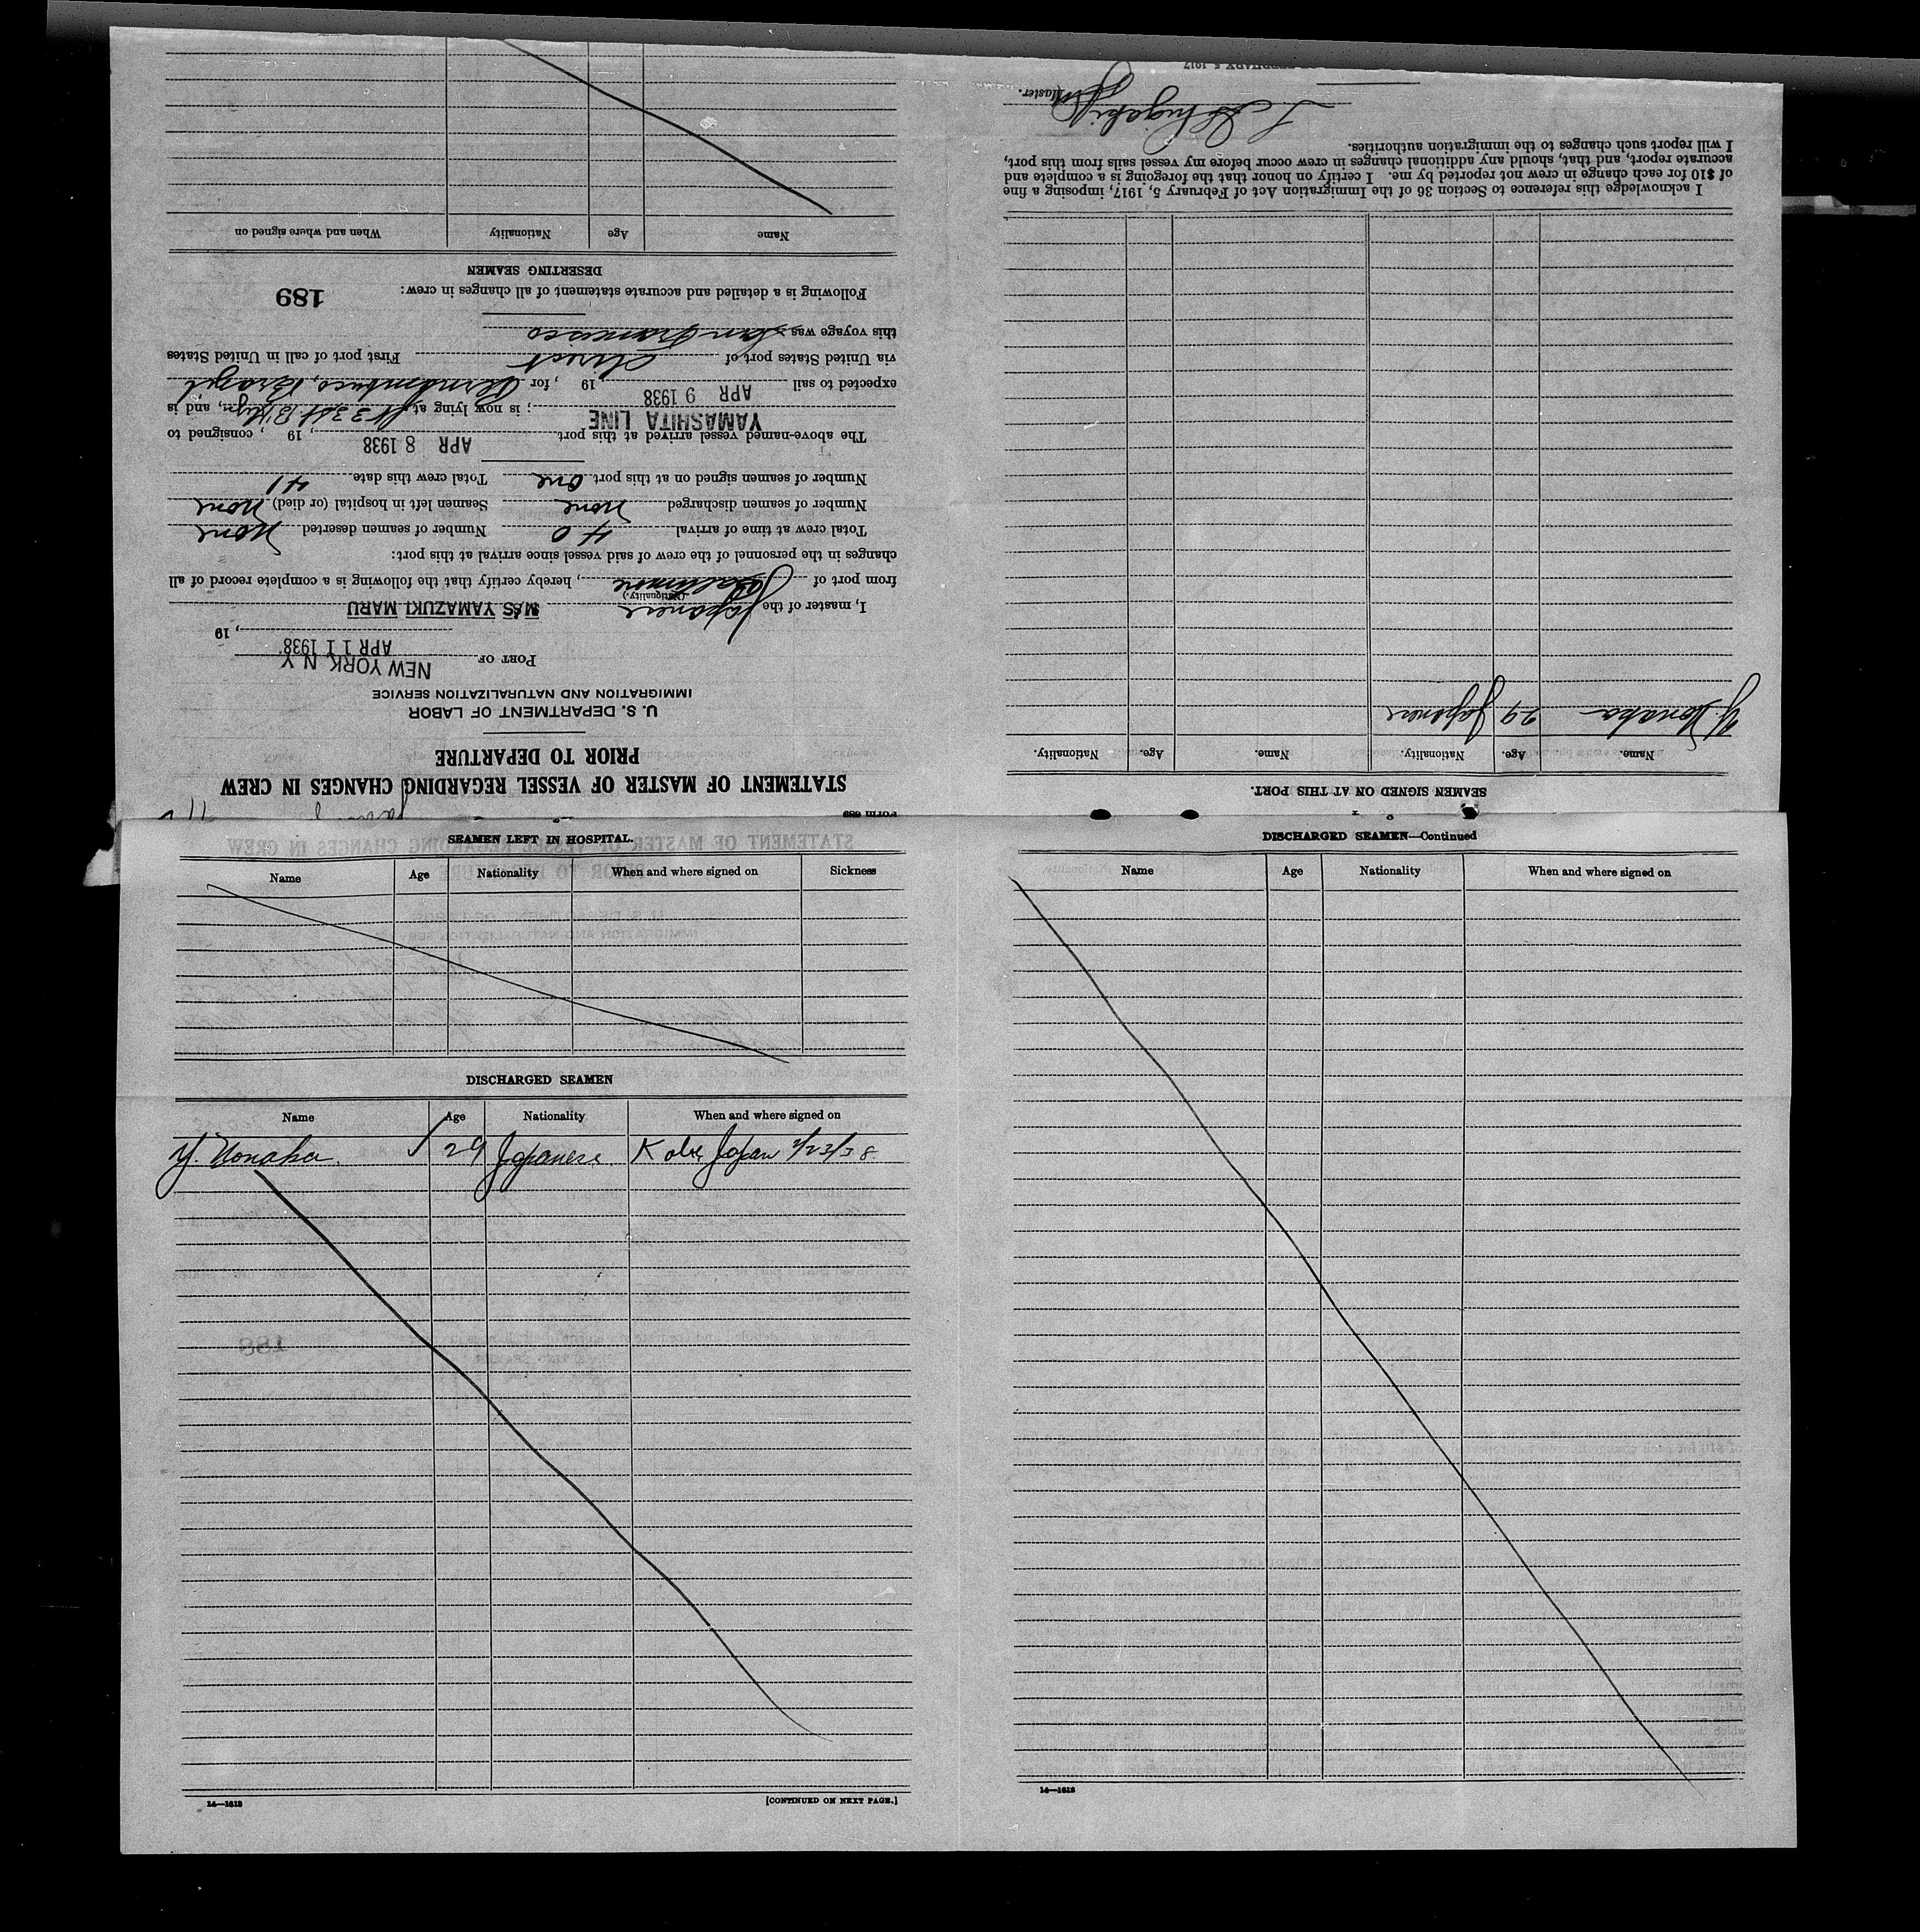 Form 689
STATEMENT OF MASTER OF VESSEL REGARDING CHANGES IN CREW
PRIOR TO DEPARTURE
U. S. DEPARTMENT OF LABOR
IMMIGRATION AND NATURALIZATION SERVICE
PORT OF NEW YORK N Y
APR 11 1938, 19
I, master of the Japanese M/S YAMAZUKI MARU
(Nationality.)
from port of Baltimore, hereby certify that the following is a complete record of all
changes in the personnel of the crew of said vessel since arrival at this port:
Total crew at time of arrival 40 Number of seamen deserted None
Number of seamen discharged None Seamen left in hospital (or died) None
Number of seamen signed on at this port one Total crew this date 41
The above-named vessel arrived at this port APR 8 1938, 19 , consigned to
YAMASHITA LINE; is now lying at 33 St. B'klyn, and is
expected to sail APR 9 1938, 19 , for Pernambuco, Brazil
via United States port of direct First port of call in United States
this voyage was San Francisco
Following is a detailed and accurate statement of all changes in crew:
189
DESERTING SEAMEN
Name Age Nationality When and where signed on
SEAMEN SIGNED ON AT THIS PORT.
Name. Age. Nationality. Name. Age. Nationality.
Y. Nonaka 29 Japanese
I acknowledge this reference to Section 36 of the Immigration Act of February 5, 1917, imposing a fine
of $10 for each change in crew not reported by me. I certify on honor that the foregoing is a complete and
accurate report, and that, should any additional changes in crew occur before my vessel sails from this port,
I will report such changes to the immigration authorities.
Master.
SEAMEN LEFT IN HOSPITAL.
Name Age Nationality When and where signed on Sickness
DISCHARGED SEAMEN
Name Age Nationality When and where signed on
Y. Nonaka 29 Japanese Kobe, Japan 2/23/38
14—1613
[CONTINUED ON NEXT PAGE.]
DISCHARGED SEAMEN—Continued
Name Age Nationality When and where signed on
14—1613